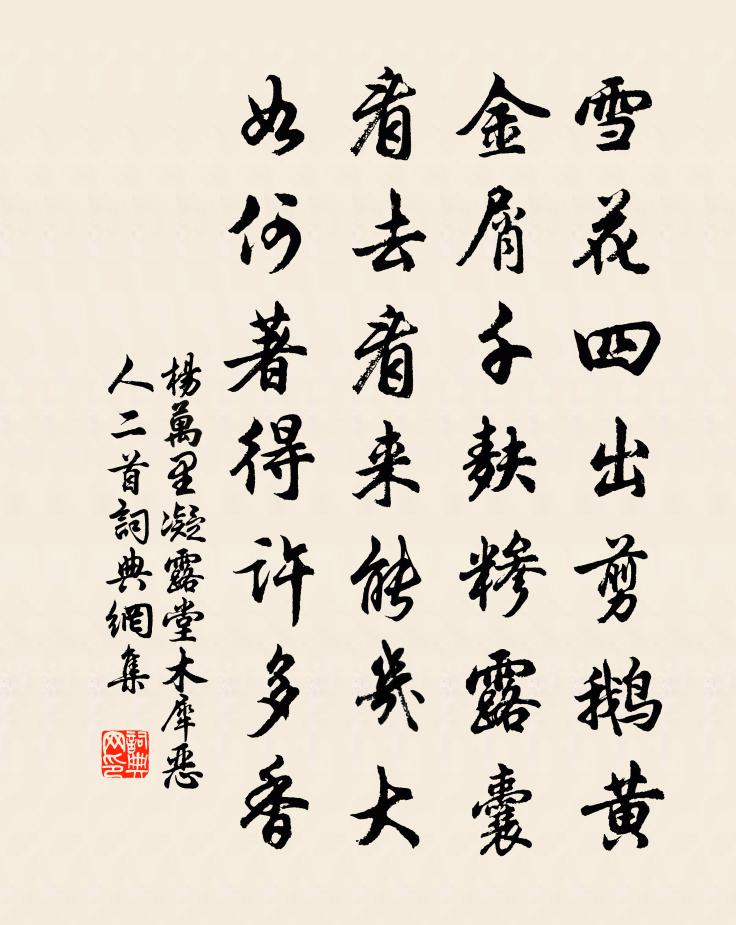 雪花四出剪鹅黄
金屑千麸糁露囊
看去看来能几大
如何著得许多香
楊萬里凝露堂木犀恶
人二首詞典網集
詞典
网印